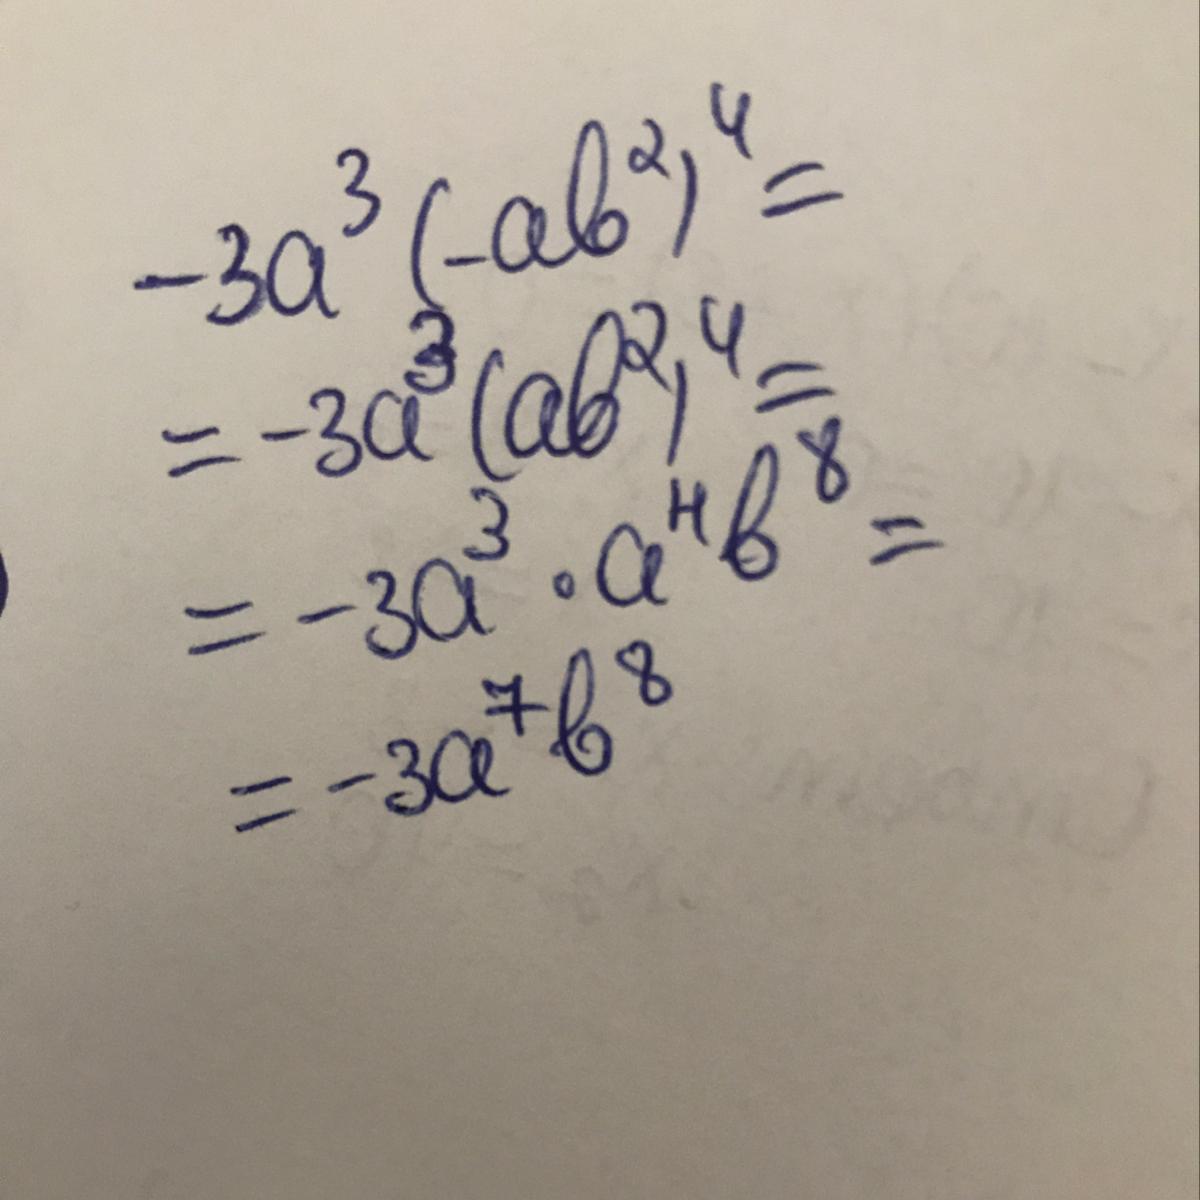 -3a³(-ab²)⁴=
=-3a³(ab²)⁴=
=-3a³·a⁴b⁸=
=-3a⁷b⁸